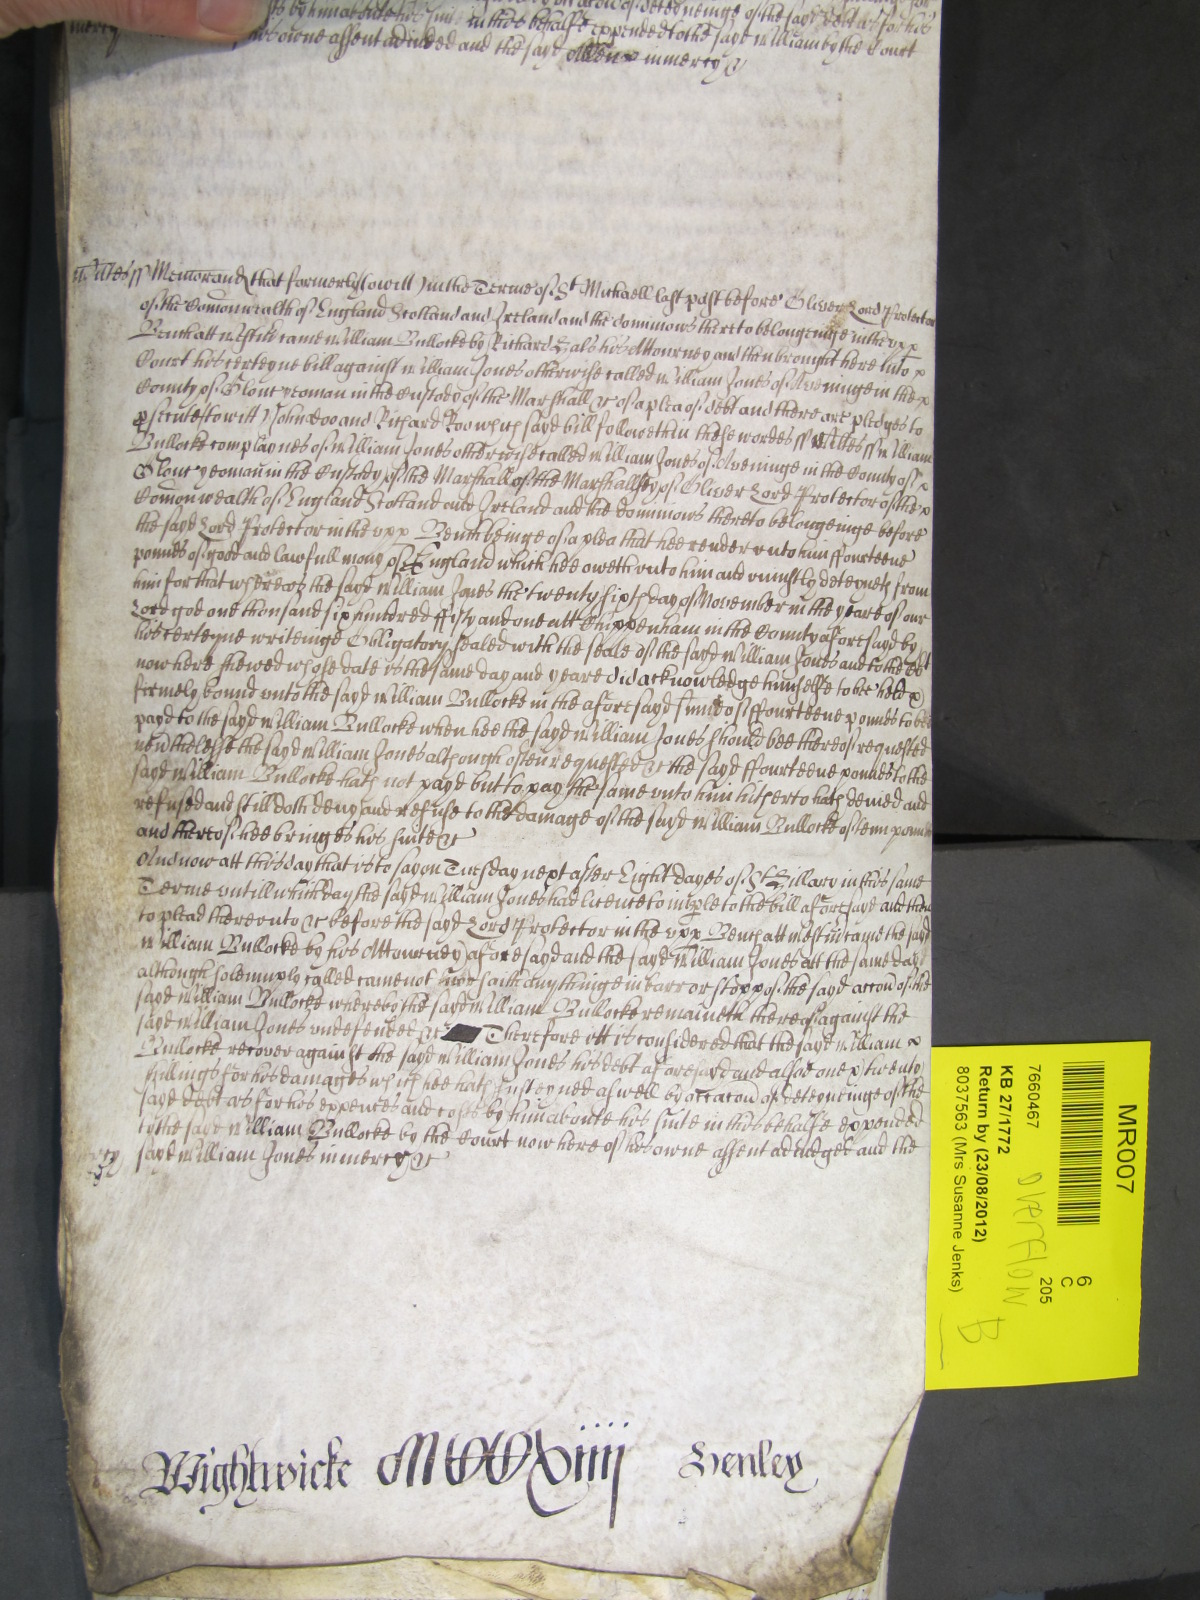 by him about his suite in this behalfe expended to the sayd William by the Court
mercy his owne assent adiudged and the sayd Allen in mercy &
Wiltes ss Memorand that formerly (to witt) in the Terme of St Michaell last past before Oliver Lord Protector
of the Comonwealth of England Scotland and Ireland and the dominions thereto belongeinge in the vpp
Bench att Westm came William Bullocke by Richard Hals his Attourney and then brought here into
Court his certeyne bill against William Jones otherwise called William Jones of Aveninge in the
County of Glouc yeoman in the Custody of the Marshall &c of a plea of debt and there are pledges to
psecute (to witt) John Doo and Richard Roo which sayd bill followeth in these wordes ss Wiltes ss William
Bullocke complaynes of William Jones otherwise called William Jones of Aveninge in the County of
Glouc yeoman in the Custody of the Marshall of the Marshallsey of Oliver Lord Protector of the
Comonwealth of England Scotland and Ireland and the dominions thereto belongeinge before
the sayd Lord Protector in the vpp Bench beinge of a plea that hee render vnto him ffourteene
pounds of good and lawfull mony of England which hee oweth vnto him and vniustly deteyneth from
him for that whereas the sayd William Jones the twenty sixth day of November in the yeare of our
Lord god one thousand six hundred ffifty and one att Chippenham in the County aforesayd by
his certeyne writeinge Obligatory sealed with the seale of the sayd William Jones and to the Court
now here shewed whose date is the same day and yeare did acknowledge himselfe to be held
firmely bound vnto the sayd William Bullocke in the aforesayd summe of ffourteene pounds to bee
payd to the sayd William Bullocke when hee the sayd William Jones should bee thereof requested
neuthelesse the sayd William Jones although often requested &c the sayd ffourteene pounds to the
sayd William Bullocke hath not payd but to pay the same vnto him hitherto hath denied and
refused and still doth deny and refuse to the damage of the sayd William Bullocke of tenn pounds
and thereof hee bringes his suite &c
And now att this day that is to say on Tuesday next after Eight dayes of St Hillary in this same
Terme vntill which day the sayd William Jones had licence to imple to the bill aforesayd and then
to plead therevnto &c before the sayd Lord Protector in the vpp Bench att Westm came the sayd
William Bullocke by his Attourney aforesayd and the sayd William Jones att the same day
although solemnply called came not nor saith any thinge in barr or stopp of the sayd accon of the
sayd William Bullocke whereby the sayd William Bullocke remaineth thereof against the
sayd William Jones vndefended &c Therefore itt is considered that the sayd William
Bullocke recover against the sayd William Jones his debt aforesayd and alsoe one & twenty
shillings for his damages which hee hath susteyned aswell by occacon of deteyneinge of the
sayd debt as for his expences and costs by him aboute his suite in this behalfe expended
to the sayd William Bullocke by the Court now here of his owne assent adiudged and the
mercy sayd William Jones in mercy &c
Wightwicke MCCXiiii Henley
MR007
7660467
6
C
205
KB 27/1772
Return by (23/08/2012)
8037563 (Mrs Susanne Jenks)
overflow
B